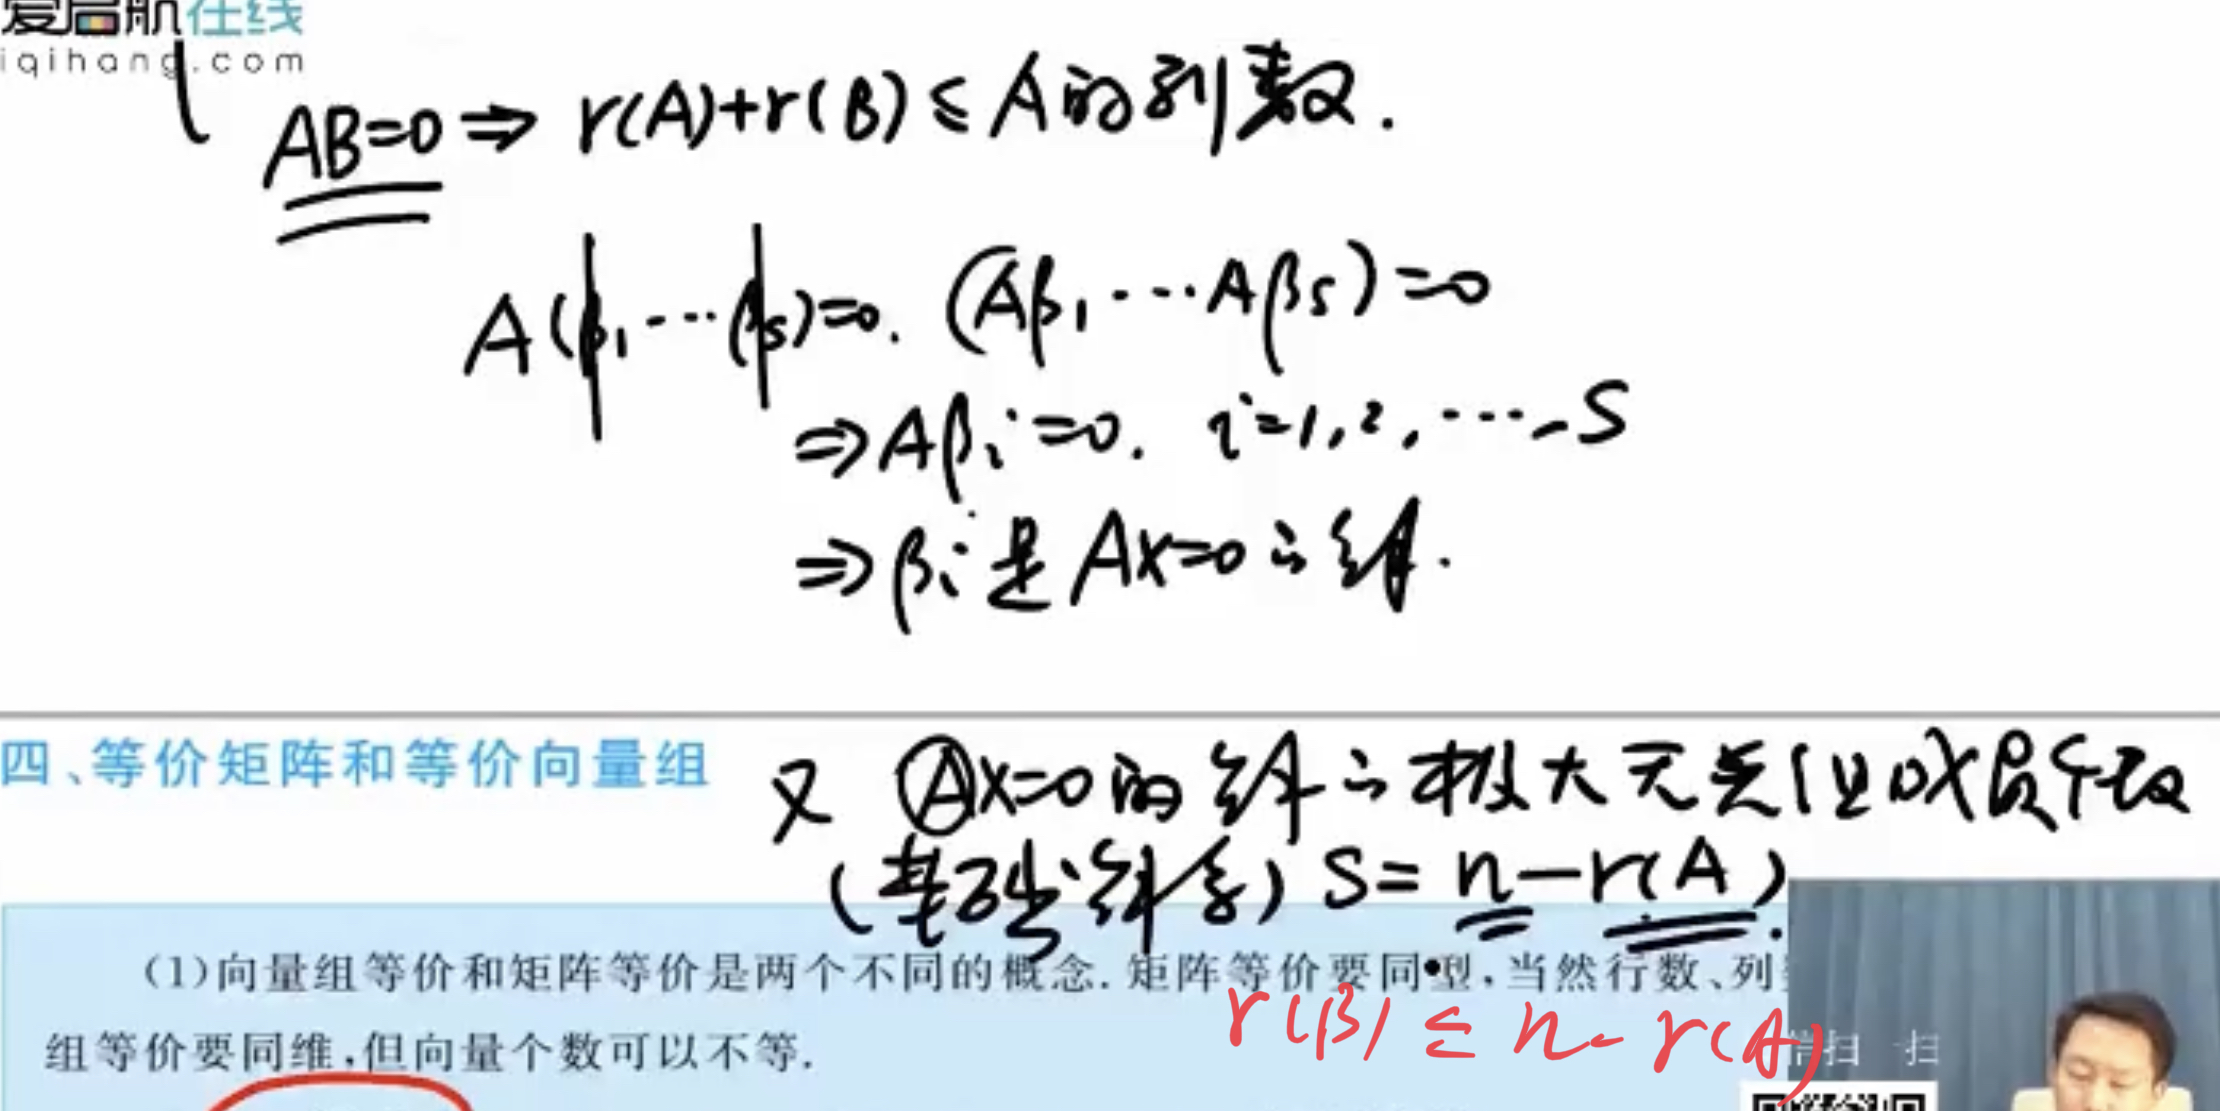 爱启航在线
iqihang.com
AB=0⇒ r(A)+r(B)≤A的列数.
A(β₁…βs)=0. (Aβ₁…Aβs)=0
⇒Aβi=0. i=1,2,…,s
⇒βi是AX=0的解.
四、等价矩阵和等价向量组
又 AX=0的解的极大无关组成员个数
(基础解系) S=n-r(A).
(1)向量组等价和矩阵等价是两个不同的概念.矩阵等价要同型,当然行数、列
r(β)≤n-r(A)
组等价要同维,但向量个数可以不等.
扫一扫